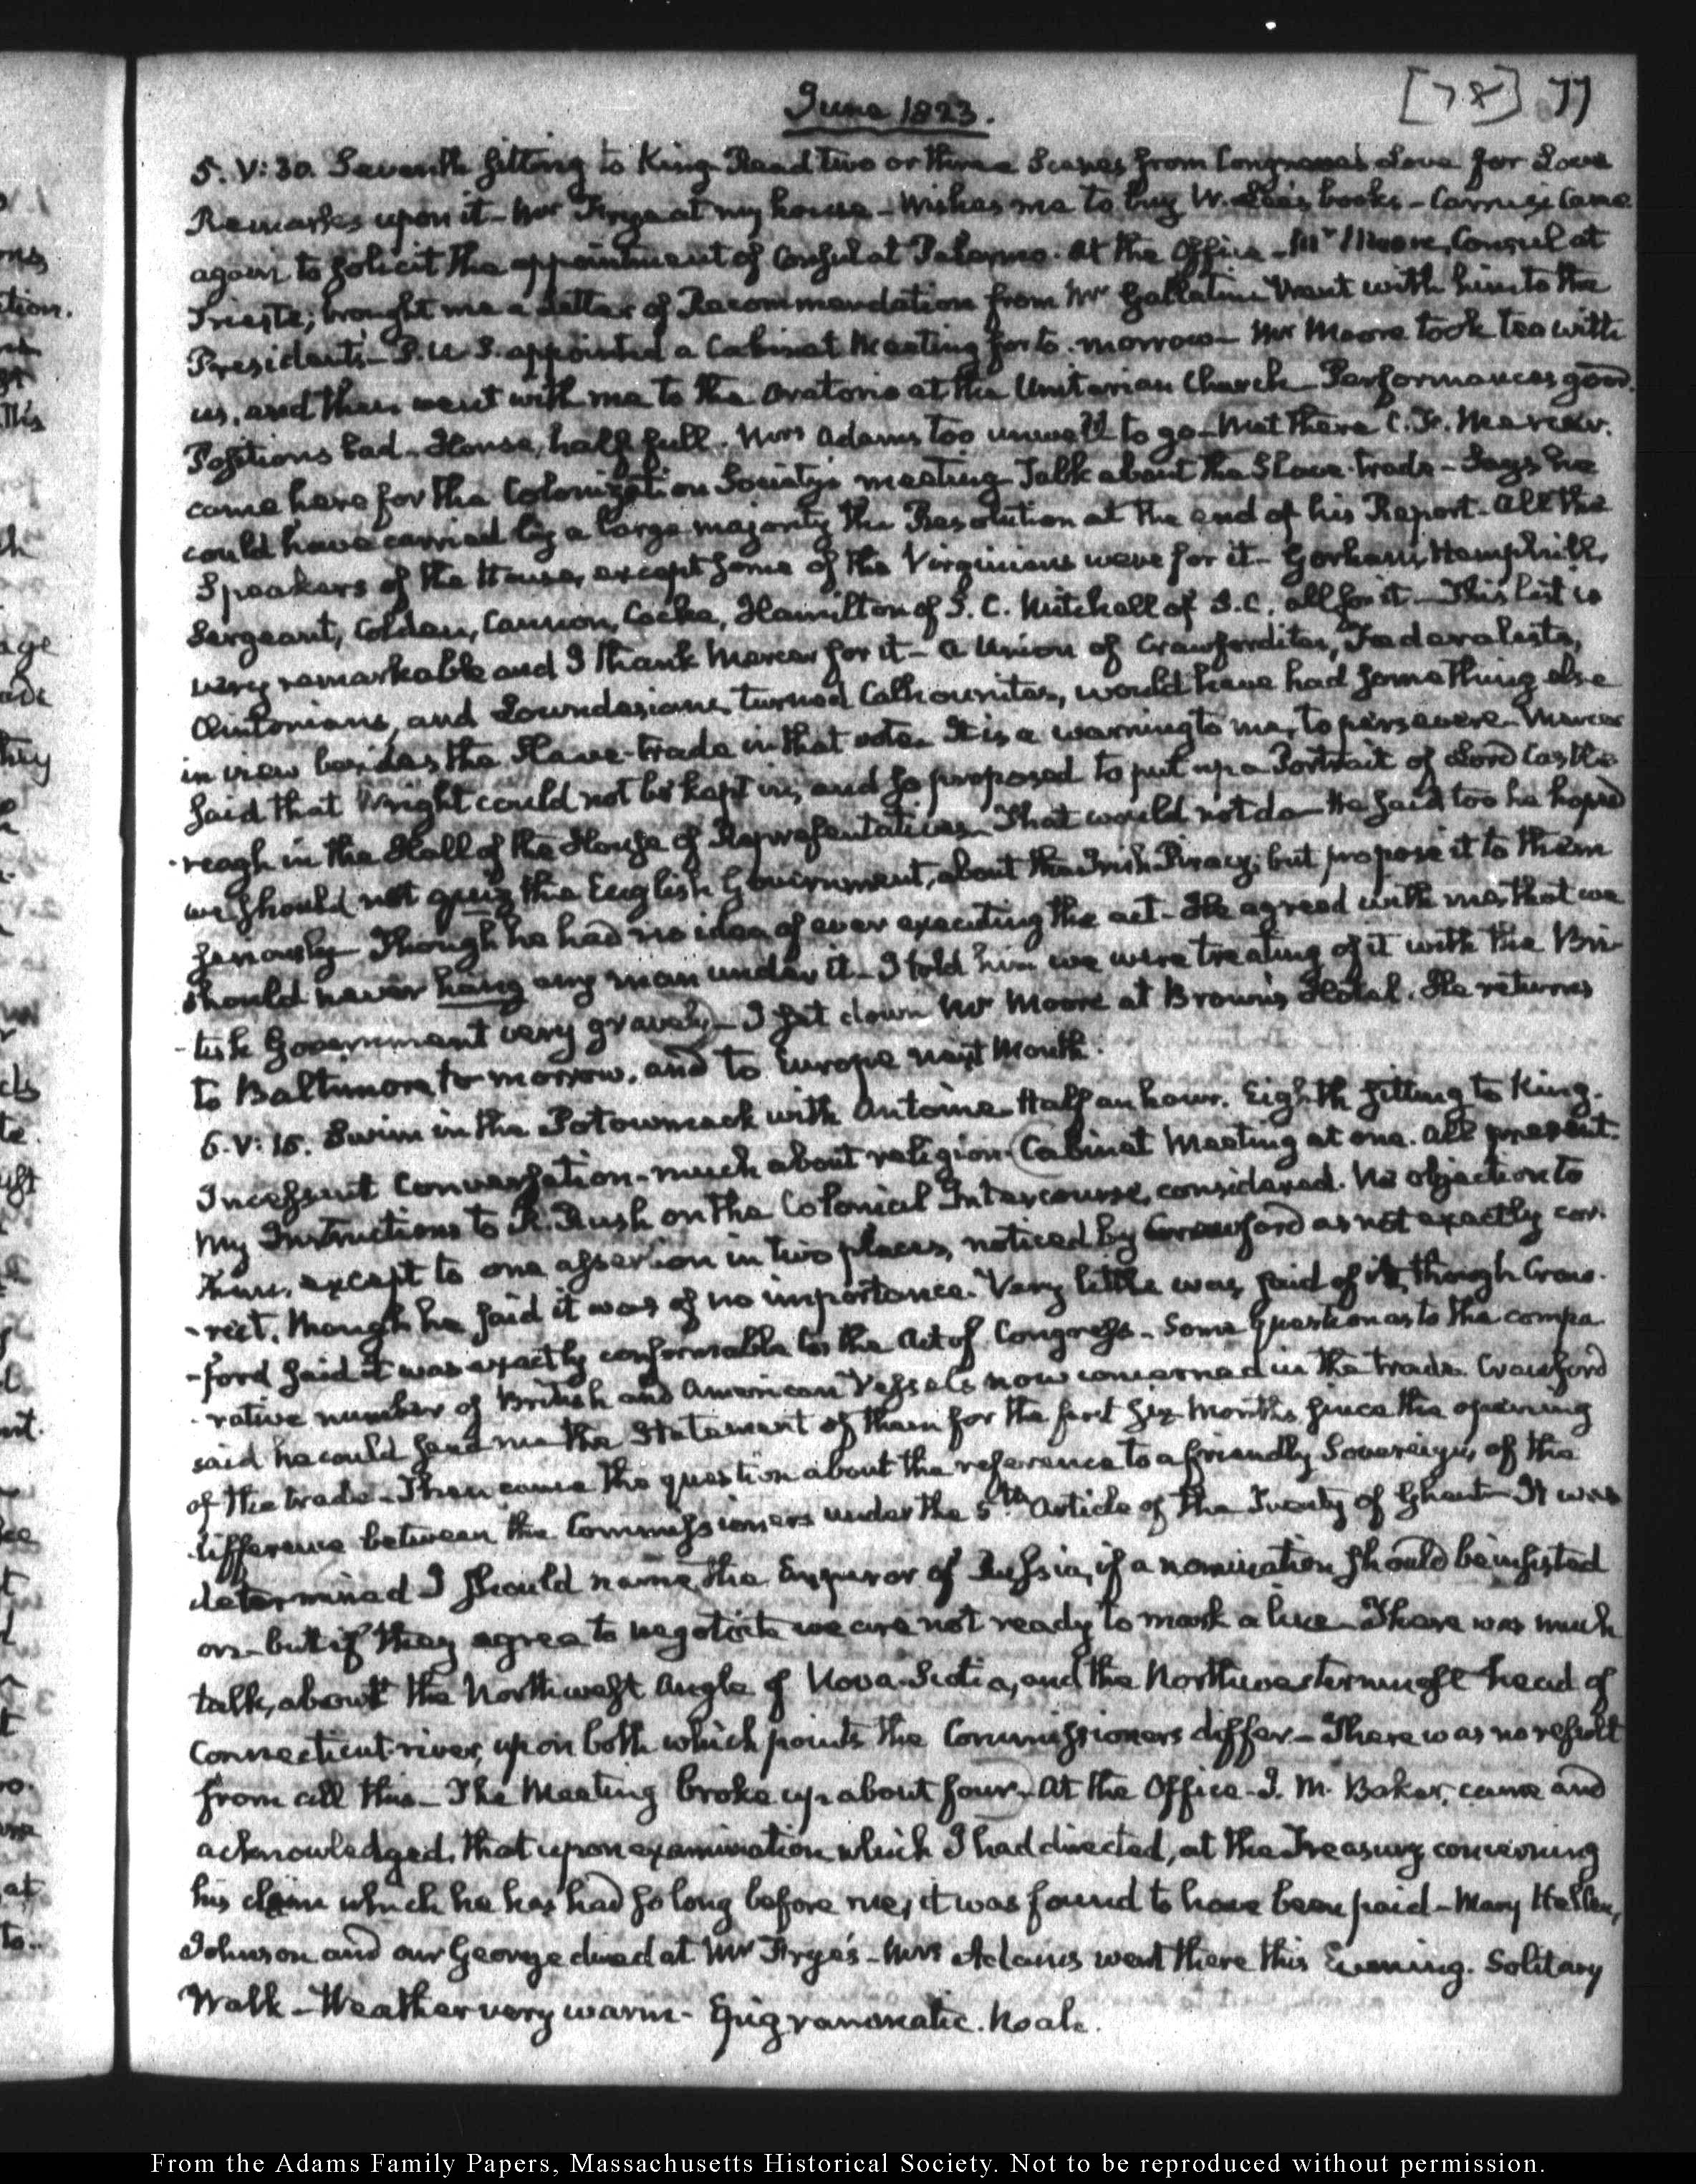 June 1823.
[78] 77
5. V: 30. Seventh sitting to King. Read two or three Scenes from Congreve's Love for Love
Remarks upon it - Mr Frye at my house - Wishes me to buy W. Lee's books - Carrusi Came
again to solicit the appointment of Consul at Palermo. At the Office - Mr Moore, Consul at
Trieste; brought me a Letter of Recommendation from Mr Gallatin Went with him to the
President's - P. U S. appointed a Cabinet Meeting for to-morrow - Mr Moore took tea with
us, and then went with me to the Oratorio at the Unitarian Church - Performances good.
Positions bad - House, half full. Mrs Adams too unwell to go - Met there C. F. Mercer.
came here for the Colonization Society's meeting Talk about the Slave-trade - Says he
could have carried by a large majority the Resolution at the end of his Report - All the
Speakers of the House, except some of the Virginians were for it - Gorham, Hemphill,
Sergeant, Colden, Cannon, Cocke, Hamilton of S. C. Mitchell of S. C. all for it - This list is
very remarkable and I thank Mercer for it - A Union of Crawfordites, Federalists,
Clintonians, and Lowndesians turned Calhounites, would have had something else
in view besides the Slave-trade in that vote. It is a warning to me, to persevere - Mercer
said that Wright could not be kept in, and so proposed to put up a Portrait of Lord Castle-
-reagh in the Hall of the House of Representatives - That would not do - He said too he hoped
we should not quiz the English Government, about the Piracy; but propose it to them
seriously - Though he had no idea of ever executing the act - He agreed with me, that we
should never hang any man under it - I told him we were treating of it with the Bri-
-tish Government very gravely - I set down Mr Moore at Brown's Hotel. He returns
to Baltimore to-morrow, and to Europe next Month.
6. V: 15. Swim in the Potowmack with Antoine - Half an hour. Eighth sitting to King.
Incessant Conversation - much about religion - Cabinet Meeting at one. All present.
My Instructions to R. Rush on the Colonial Intercourse, considered. No objection to
them, except to one assertion in two places, noticed by Crawford as not exactly cor-
-rect, though he said it was of no importance. Very little was said of it, though Craw-
-ford said it was exactly conformable to the Act of Congress - Some question as to the compa
-rative number of British and American Vessels now concerned in the trade. Crawford
said he could send me the Statement of them for the first six Months since the opening
of the trade - Then came the question about the reference to a friendly Sovereign, of the
difference between the Commissioners under the 5th Article of the Treaty of Ghent - It was
determined I should name the Emperor of Russia, if a nomination should be insisted
on - but if they agree to negotiate we are not ready to mark a line - There was much
talk, about the Northwest Angle of Nova-Scotia, and the Northwesternmost head of
Connecticut river, upon both which points the Commissioners differ - There was no result
from all this - The Meeting broke up about four - At the Office - J. M. Baker, came and
acknowledged, that upon examination which I had directed, at the Treasury concerning
his claim which he has had so long before me, it was found to have been paid - Mary Hellen,
Johnson and our George dined at Mr Frye's - Mrs Adams went there this Evening. Solitary
Walk - Weather very warm - Epigrammatic. Noah.
From the Adams Family Papers, Massachusetts Historical Society. Not to be reproduced without permission.